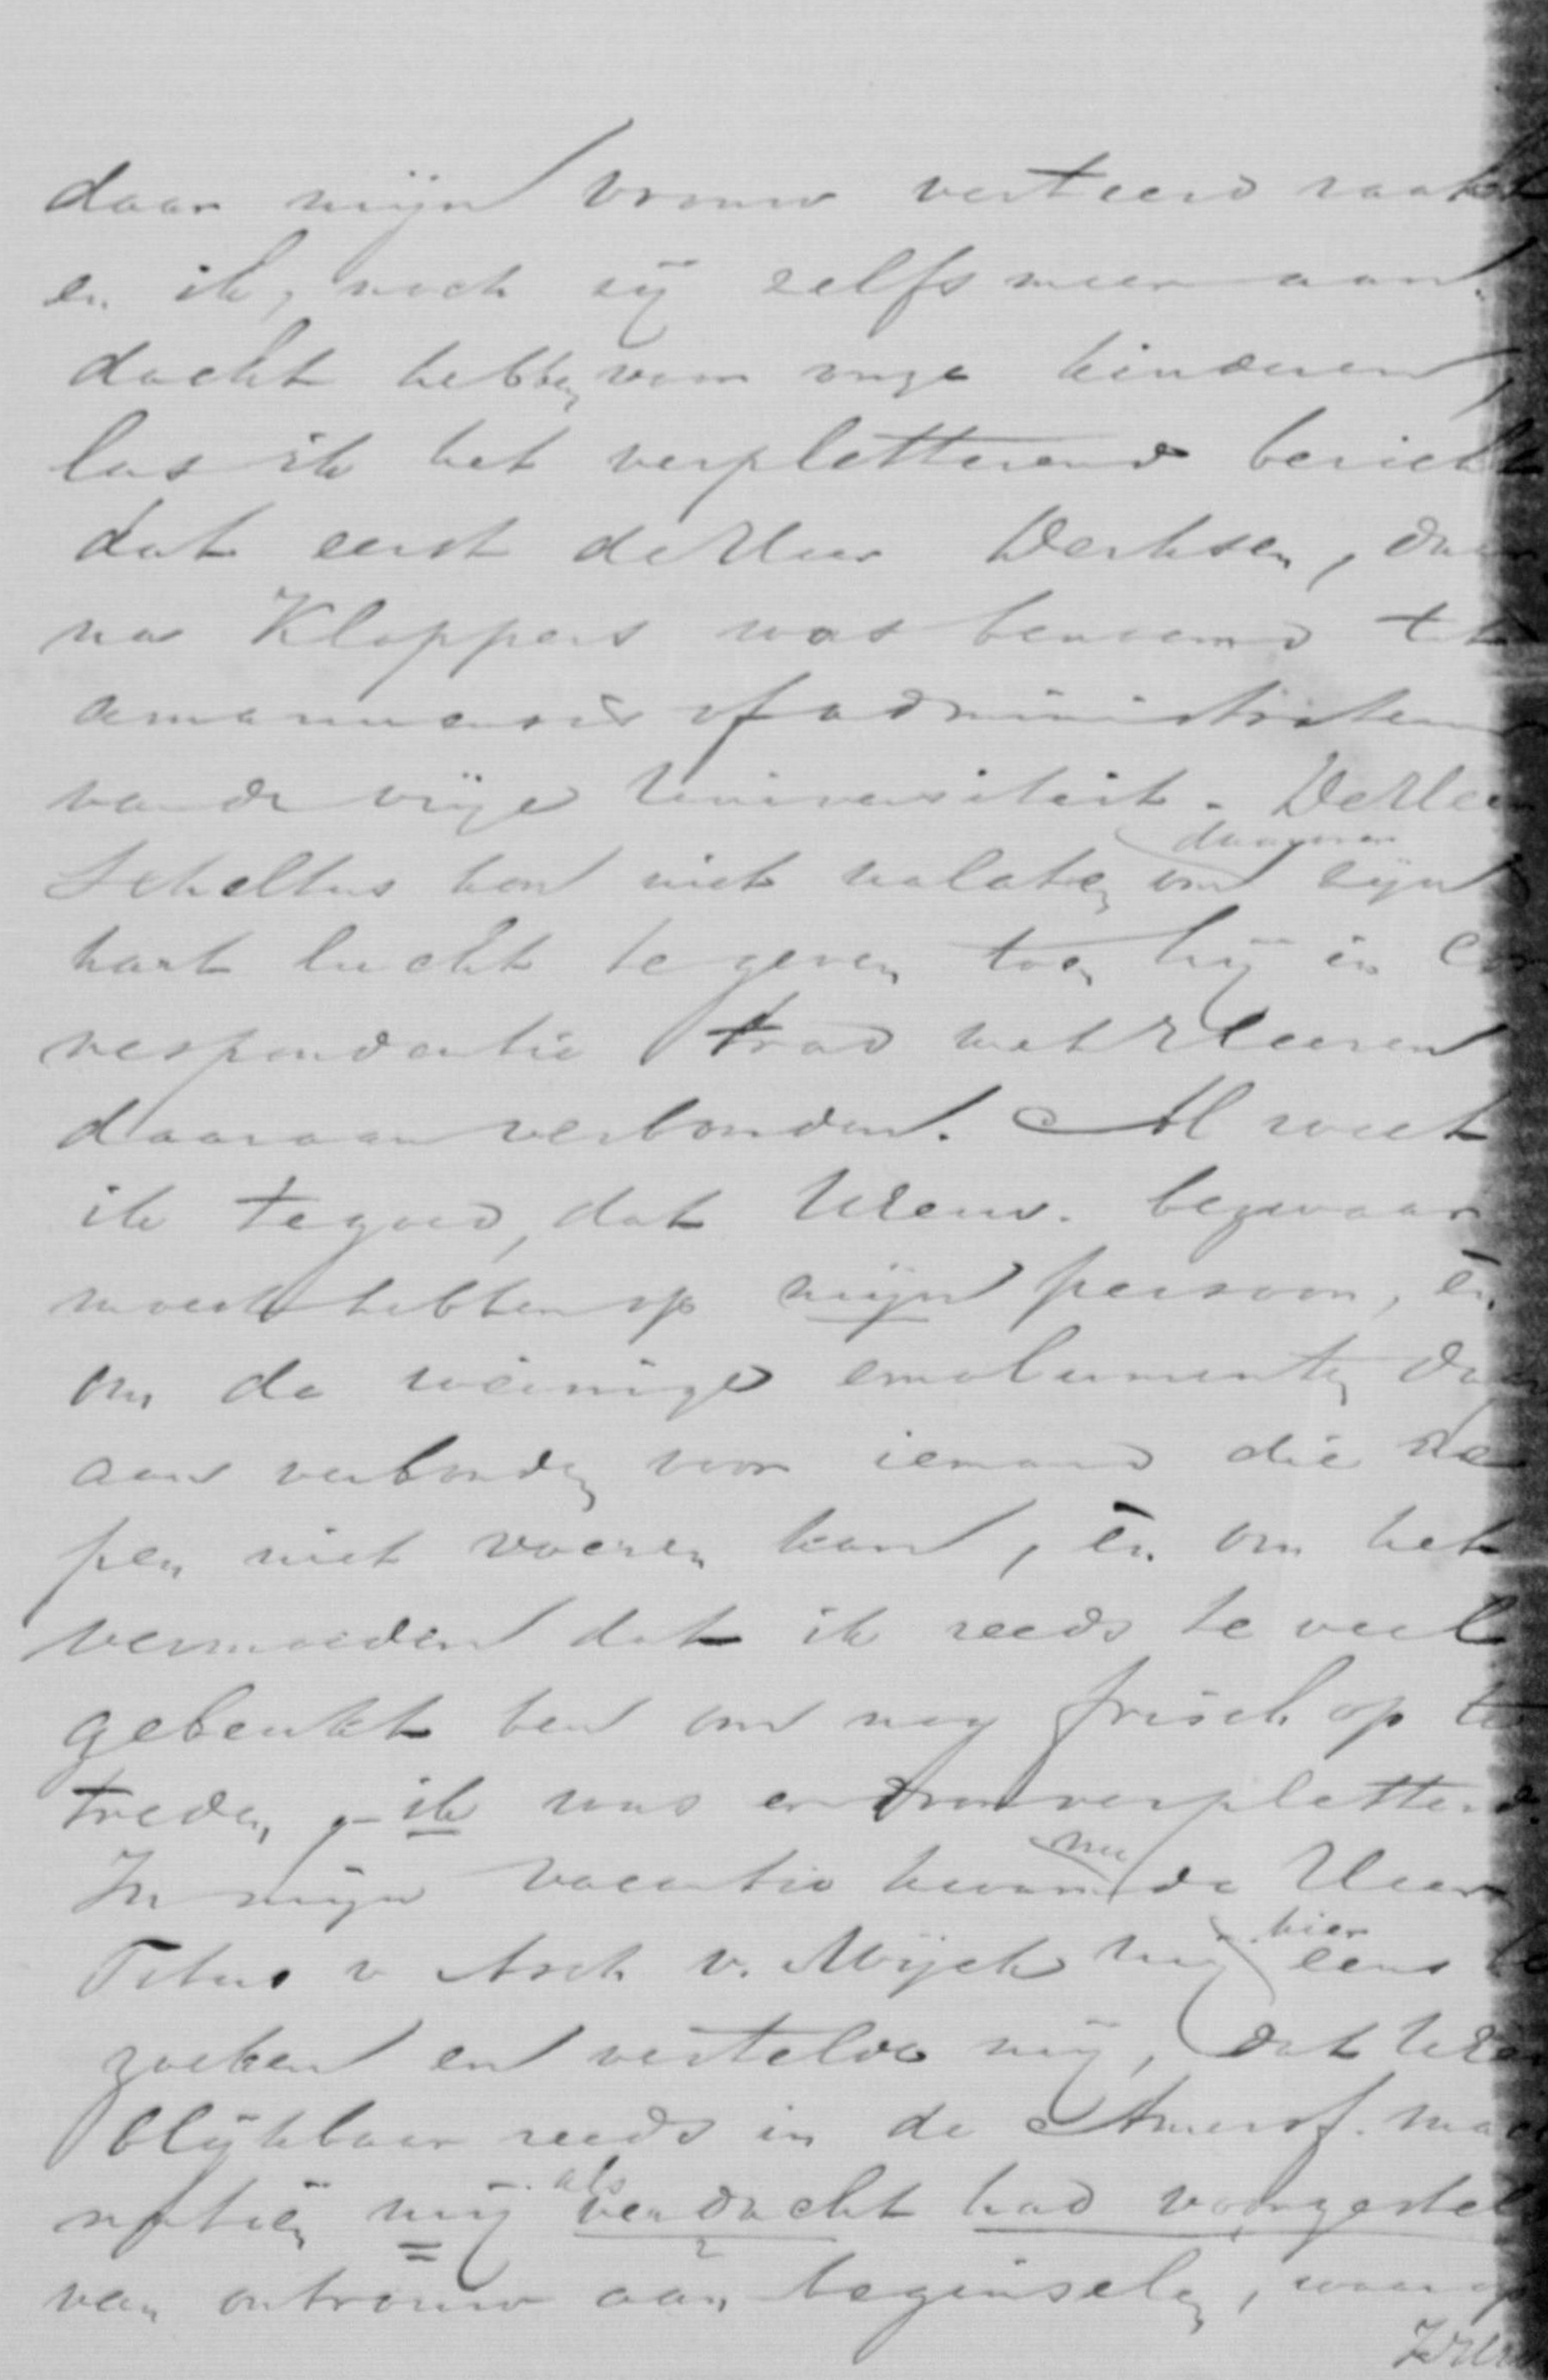 daar mijn vrouw verteerd raakt
en ik, noch zij zelfs meer aan-
dacht hebben voor onze kinderen,
las ik het verpletterend bericht
dat eerst de Heer Derksen, daar
na Kloppers was benoemd tot
amanuensis of administrateur
van de vrije Universiteit. De Heer
Scheltus kon niet nalaten daarover om zijn
hart lucht te geven toen hij in Cor
respondentie trad met Heeren
daaraan verbonden. Al weet
ik te goed, dat UEerw. bezwaar
moest hebben op mijn persoon, én
om de weinige emolumenten daar
aan verbonden voor iemand die de
pen niet voeren kan, én om het
vermoeden dat ik reeds te veel
gebeukt ben om nog frisch op te
treden, – ik was er door verpletterd.
In mijn vacantie kwam nu de Heer
Titus v Asch v. Wijck mij hier eens be
zoeken en vertelde mij, dat UEer
blijkbaar reeds in de Amersf. mac
natiën mij als verdacht had voorgesteld
van ontrouw aan beginselen, waarop